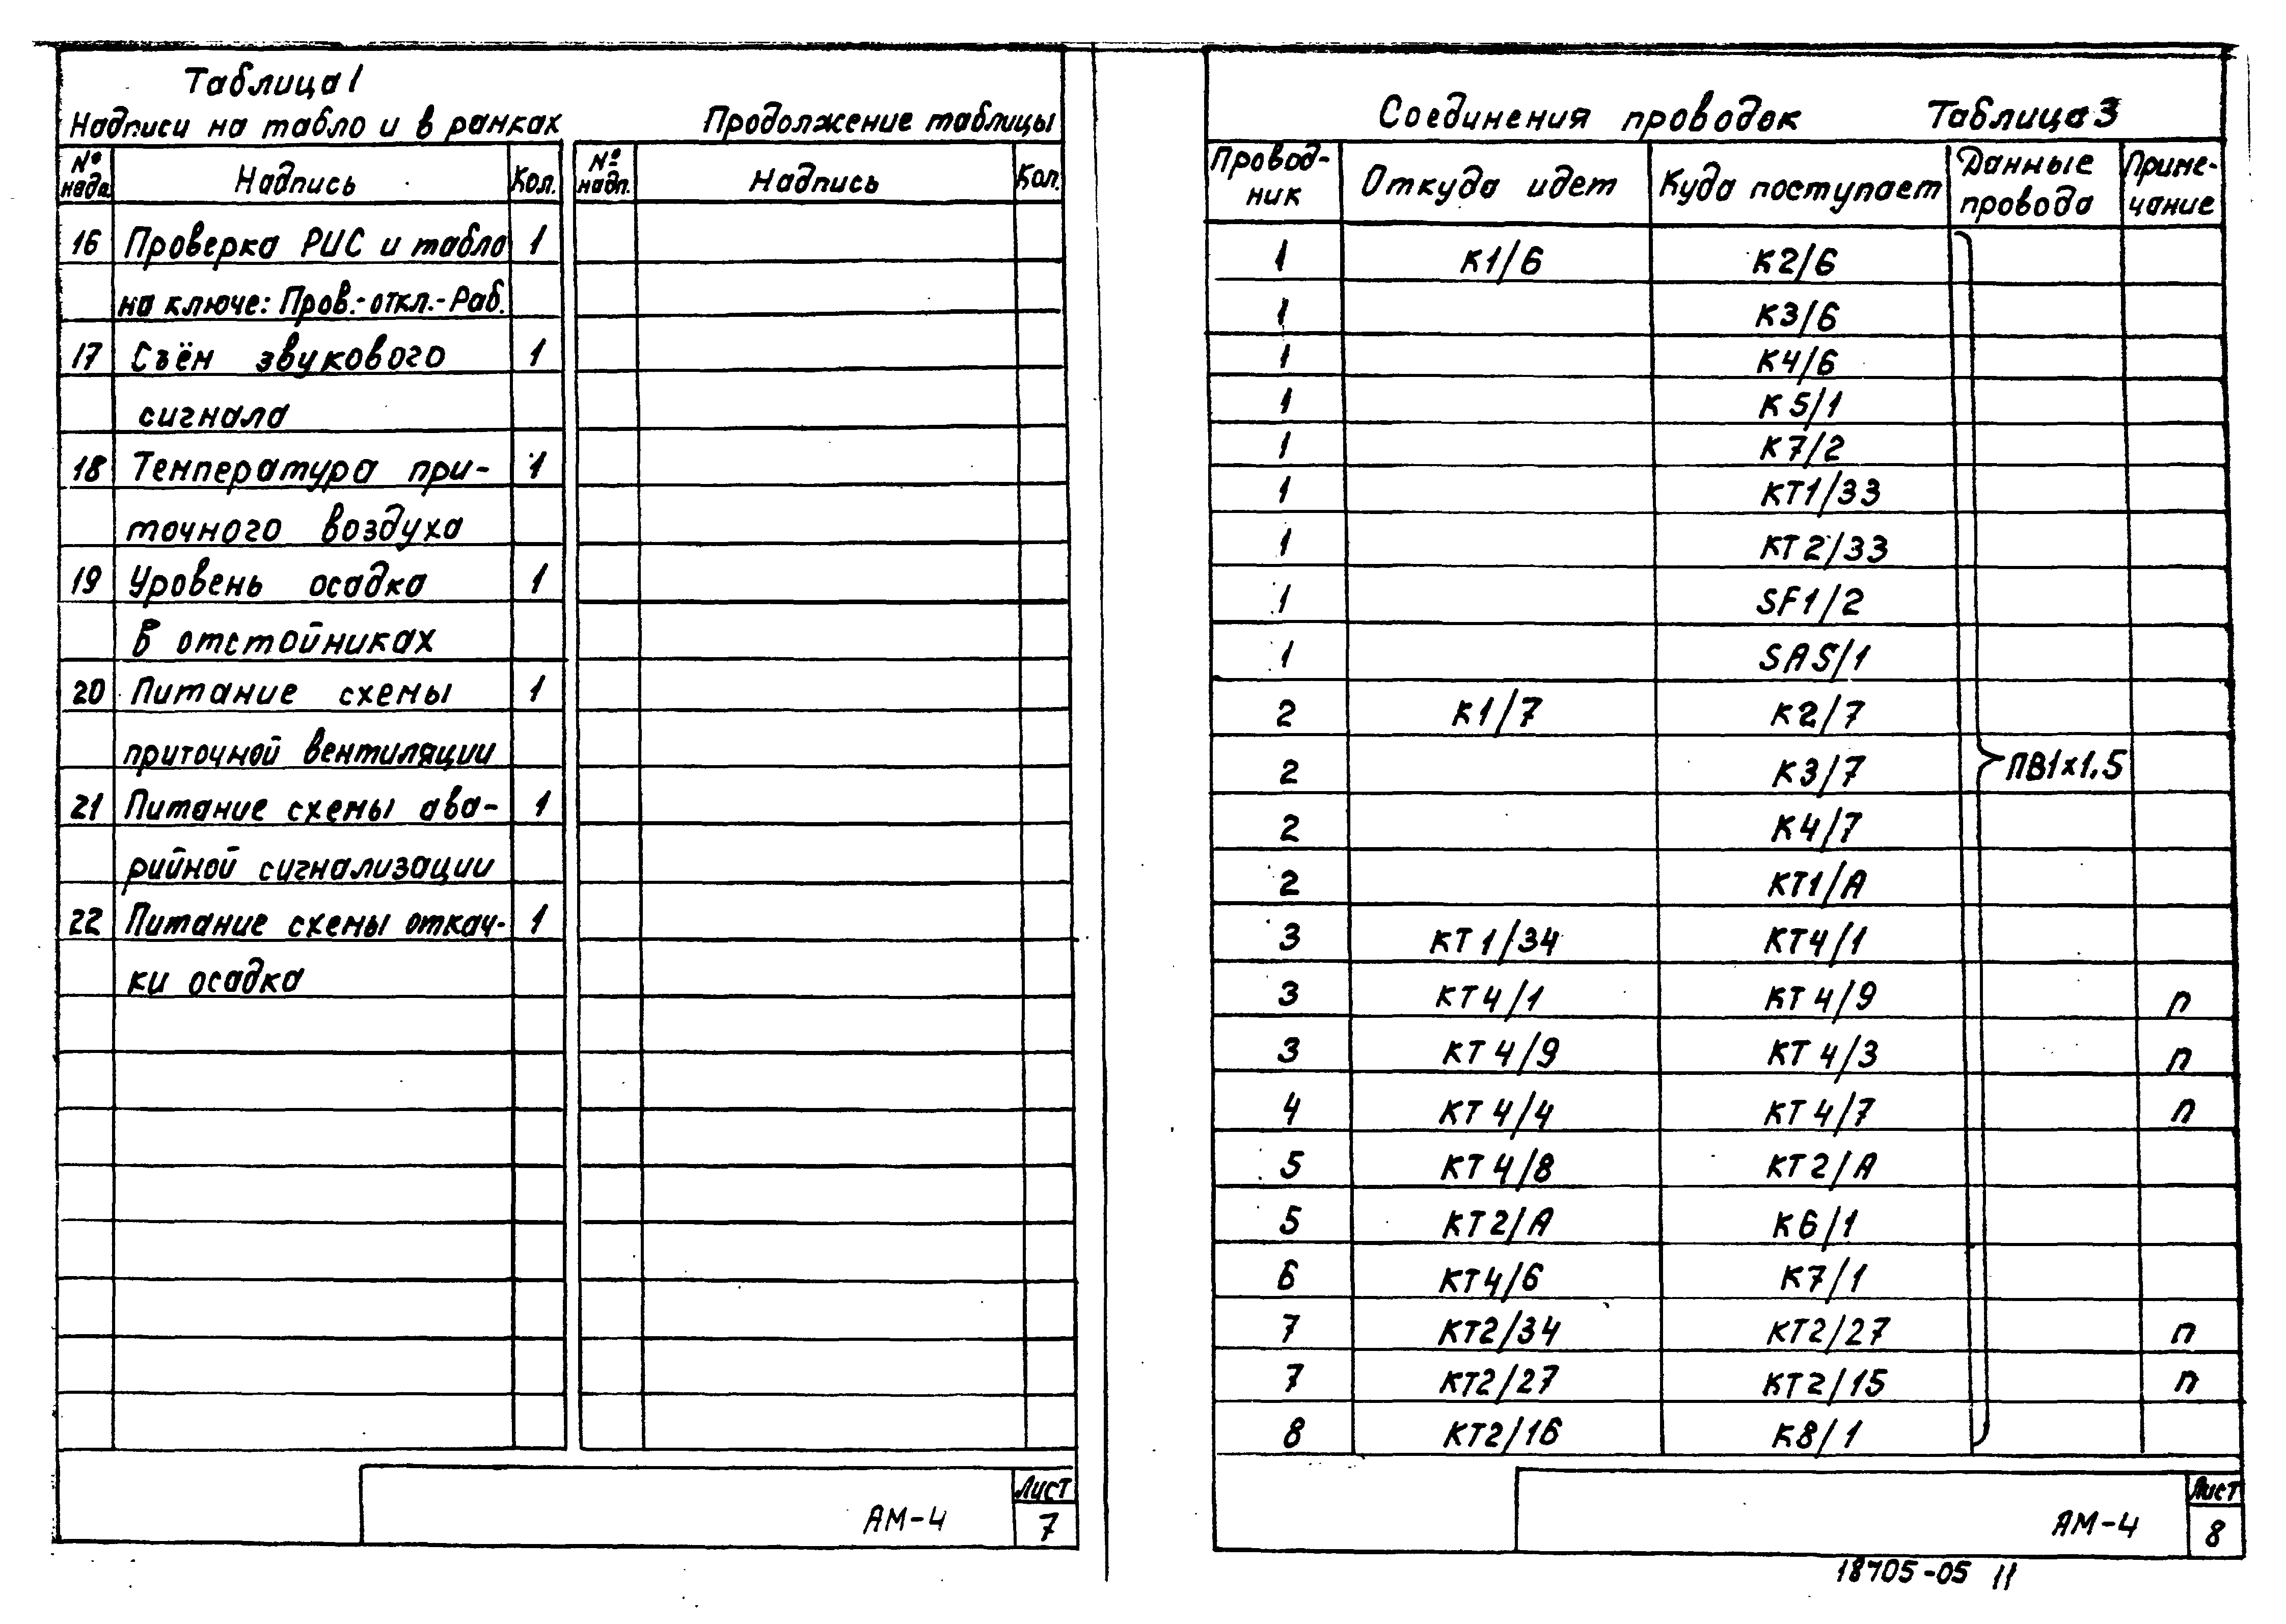 Таблица 1
Надписи на табло и в рамках
Продолжение таблицы
№ надп. Надпись Кол. № надп. Надпись Кол.
16 Проверка РИС и табло 1
на ключе: Пров.-откл.-Раб.
17 Съём звукового 1
сигнала
18 Температура при- 1
точного воздуха
19 Уровень осадка 1
в отстойниках
20 Питание схемы 1
приточной вентиляции
21 Питание схемы ава- 1
рийной сигнализации
22 Питание схемы откач- 1
ки осадка
АМ-4
Лист
7
Соединения проводок Таблица 3
Провод-ник Откуда идет Куда поступает Данные провода Приме-чание
1 К1/6 К2/6
1 К3/6
1 К4/6
1 К5/1
1 К7/2
1 КТ1/33
1 КТ2/33
1 SF1/2
1 SAS/1
2 К1/7 К2/7
2 К3/7 ПВ1х1.5
2 К4/7
2 КТ1/А
3 КТ1/34 КТ4/1
3 КТ4/1 КТ4/9 п
3 КТ4/9 КТ4/3 п
4 КТ4/4 КТ4/7 п
5 КТ4/8 КТ2/А
5 КТ2/А К6/1
6 КТ4/6 К7/1
7 КТ2/34 КТ2/27 п
7 КТ2/27 КТ2/15 п
8 КТ2/16 К8/1
АМ-4
Лист
8
18705-05 11